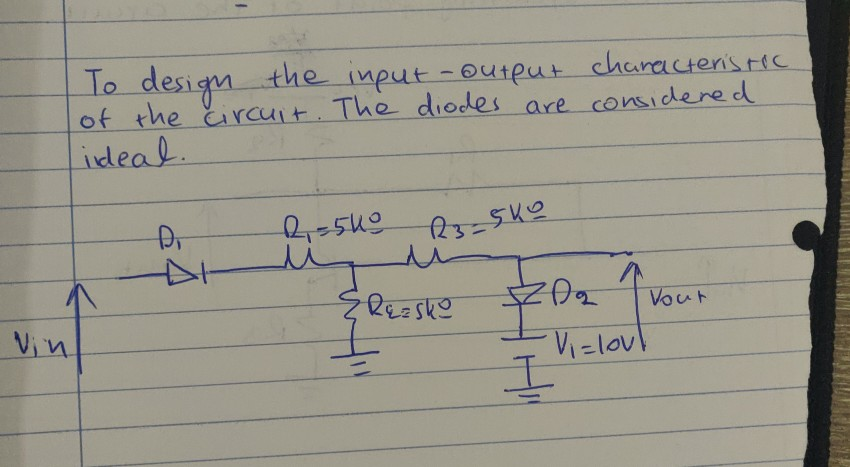 To design the input-output characteristic
of the circuit. The diodes are considered
ideal.
D1 R1=5kΩ R3=5kΩ
R2=5kΩ D2 Vout
Vin V1=10V